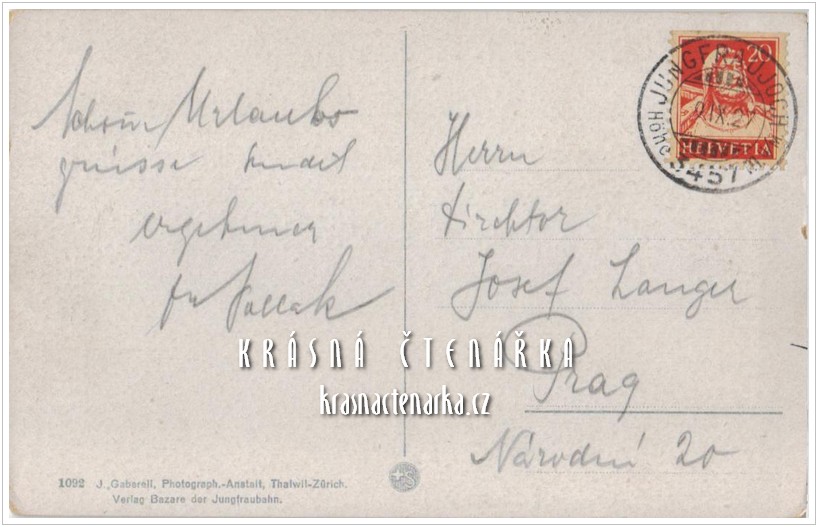 Schöne Urlaubs
grüsse sendet
ergebener
Dr Pollak
Herrn
Direktor
Josef Langer
Prag
Národní 20
20
HELVETIA
JUNGFRAUJOCH
Höhe 3457 m
KRÁSNÁ ČTENÁŘKA
krasnactenarka.cz
1092 J. Gaberell, Photograph.-Anstalt, Thalwil-Zürich.
Verlag Bazare der Jungfraubahn.